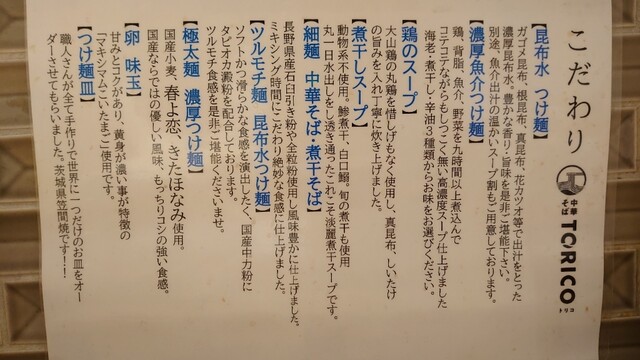 こだわり
中華そば TORICO トリコ
【昆布水 つけ麺】
ガゴメ昆布、根昆布、真昆布、花カツオ等で出汁をとった
濃厚昆布水。豊かな香り・旨味を是非ご堪能下さい。
別途、魚介出汁の温かいスープ割もご用意しております。
【濃厚魚介つけ麺】
鶏、背脂、魚介、野菜を九時間以上煮込んで
コテコテながらもしつこく無い高濃度スープ仕上げました
海老・煮干し・辛油3種類からお味をお選びください。
【鶏のスープ】
大山鶏の丸鶏を惜しげもなく使用し、真昆布、しいたけ
の旨みを入れ丁寧に炊き上げました。
【煮干しスープ】
動物系不使用。鯵煮干、白口鰯。旬の煮干も使用
丸一日水出しをし透き通ったこれこそ淡麗煮干スープです。
【細麺 中華そば・煮干そば】
長野県産石臼引き粉や全粒粉使用し風味豊かに仕上げました。
ミキシング時間にこだわり絶妙な食感に仕上げました。
【ツルモチ麺 昆布水つけ麺】
ソフトかつ滑らかな食感を演出したく、国産中力粉に
タピオカ澱粉を配合しております。
ツルモチ食感を是非ご堪能くださいませ。
【極太麺 濃厚つけ麺】
国産小麦、春よ恋、きたほなみ使用。
国産ならではの優しい風味、もっちりコシの強い食感。
【卵 味玉】
甘みとコクがあり、黄身が濃い事が特徴の
「マキシマムこいたまご」使用です。
【つけ麺皿】
職人さんが全て手作りで世界に一つだけのお皿をオー
ダーさせてもらいました。茨城県笠間焼です!!!